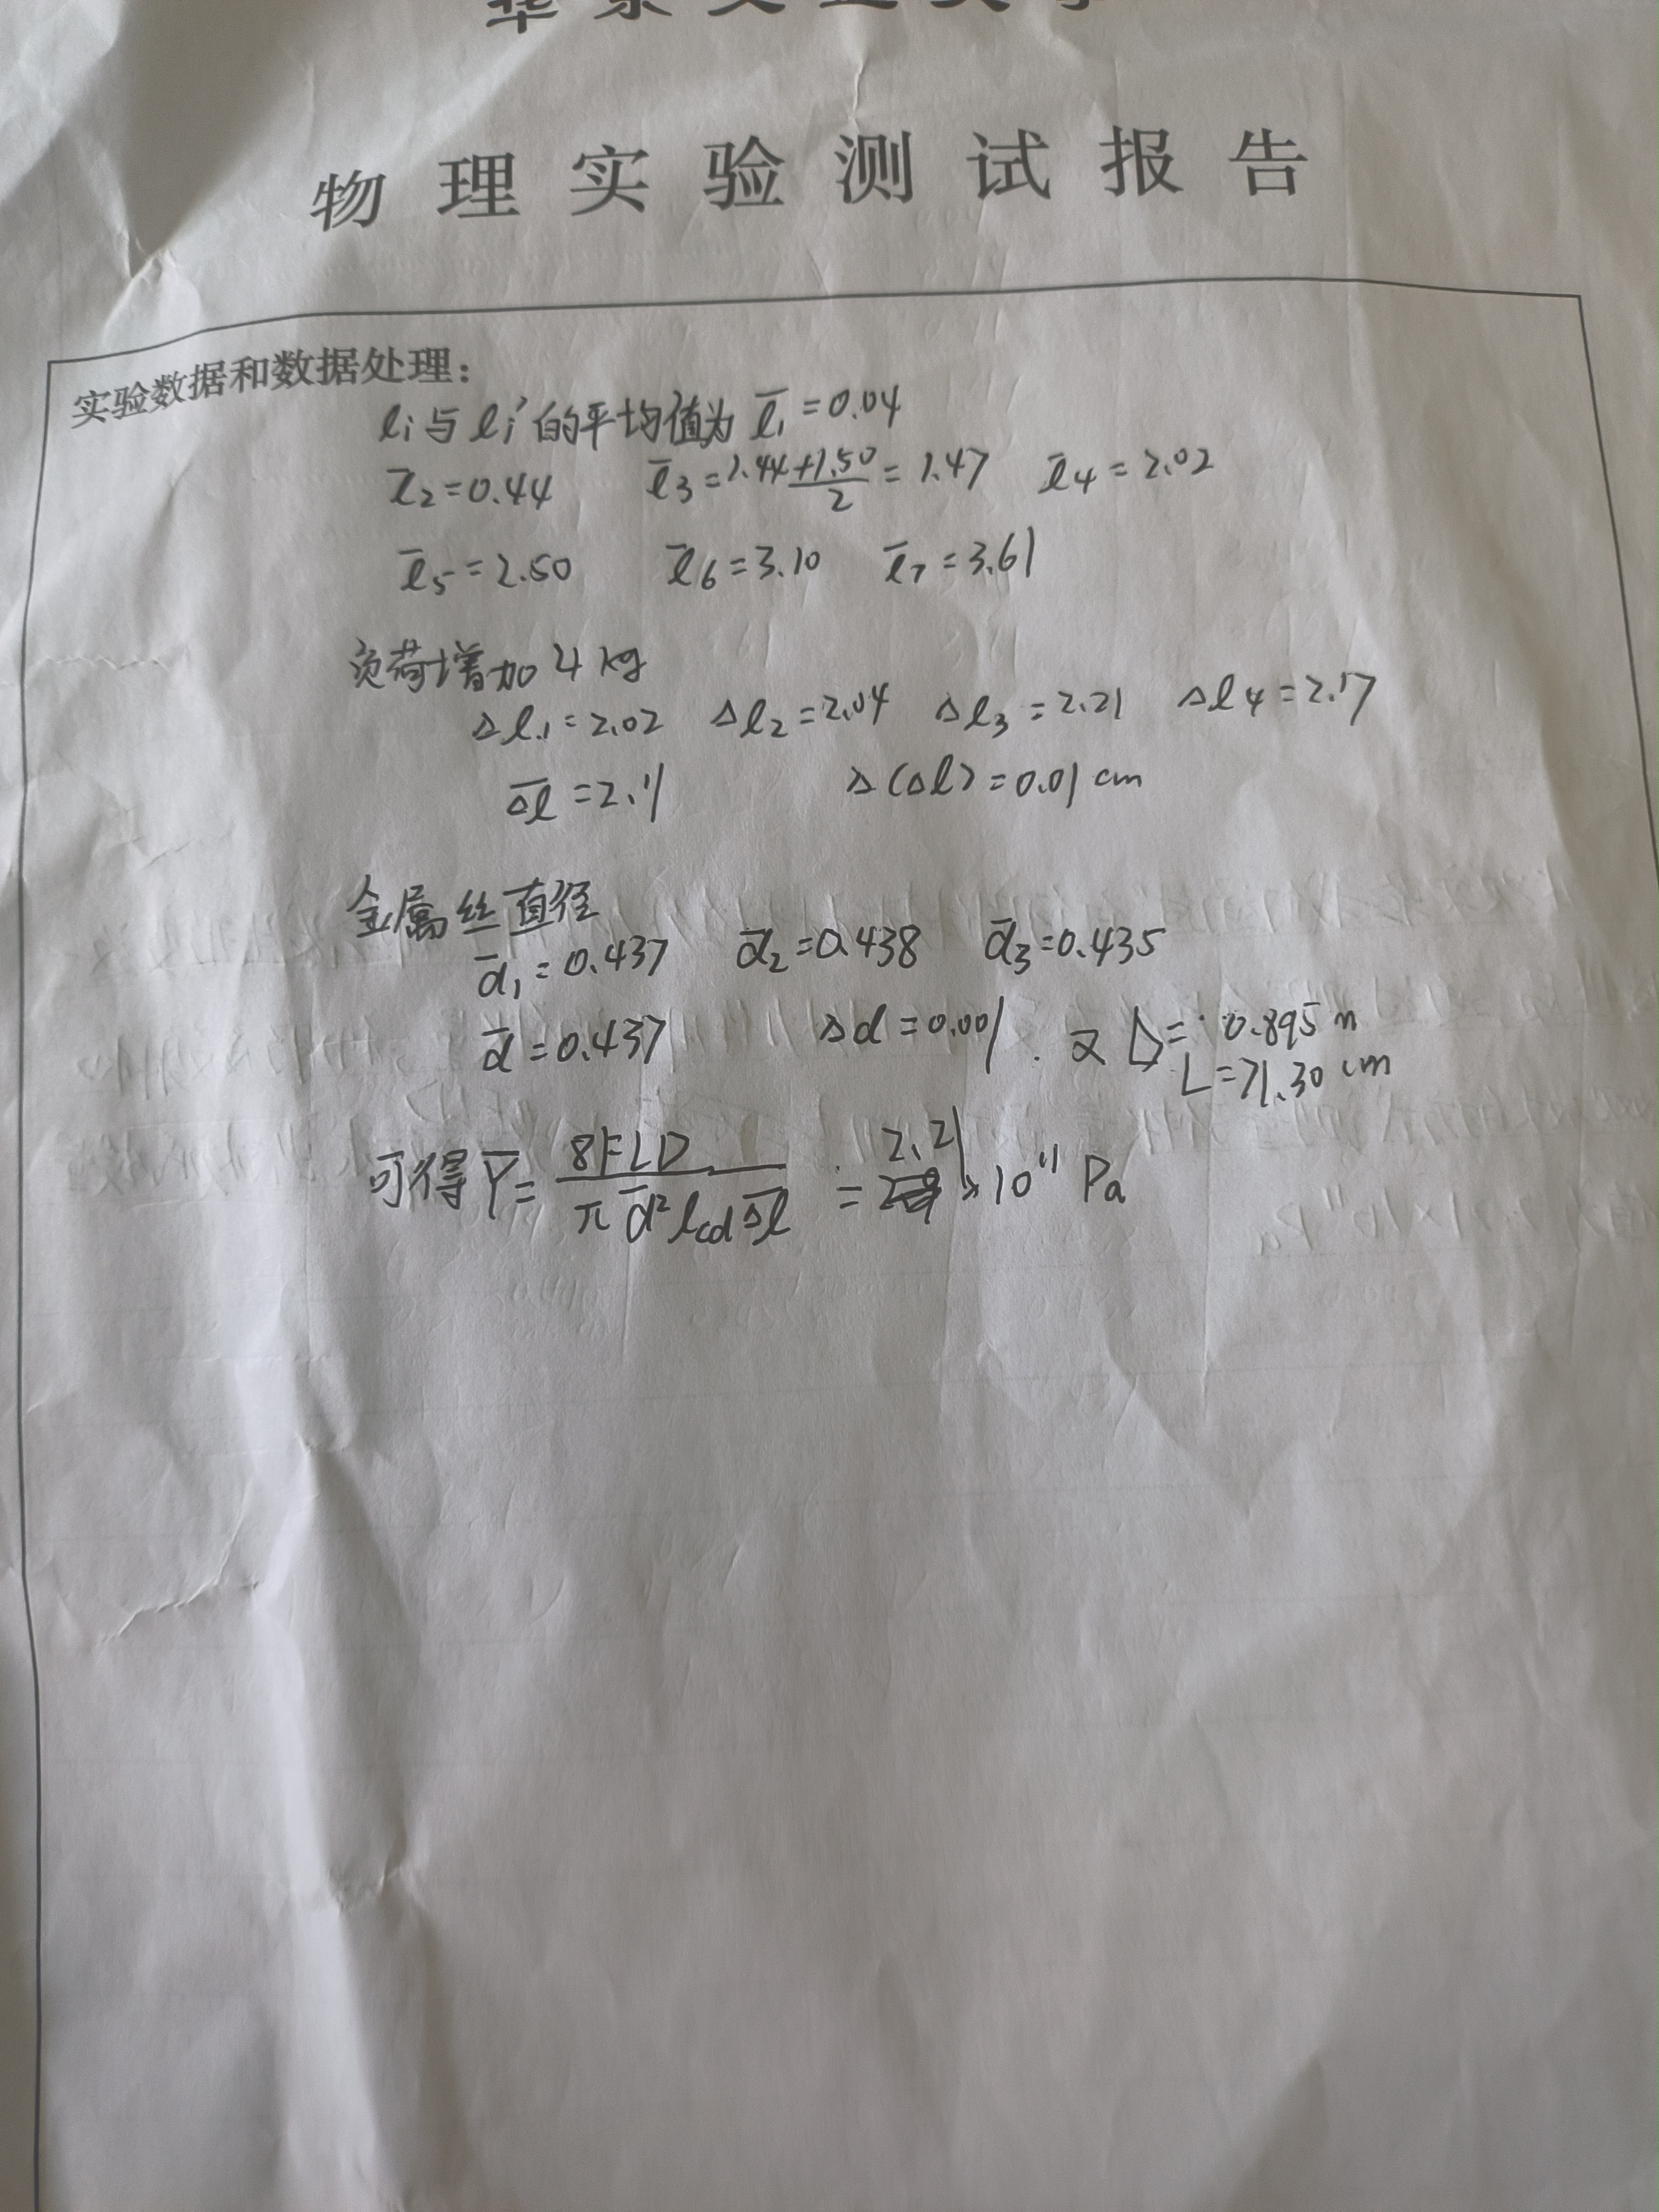 物理实验测试报告
实验数据和数据处理：
li与li'的平均值为 l̄1=0.04
l̄2=0.44 l̄3=(1.44+1.50)/2=1.47 l̄4=2.02
l̄5=2.50 l̄6=3.10 l̄7=3.61
负荷增加4kg
Δl1=2.02 Δl2=2.04 Δl3=2.21 Δl4=2.17
Δl̄=2.11 Δ(Δl)=0.01cm
金属丝直径
d̄1=0.437 d̄2=0.438 d̄3=0.435
d̄=0.437 Δd=0.001. 又 D=0.895m
L=71.30cm
可得 Ȳ=8FLD/(πd̄²lcdΔl̄)=2.21×10¹¹Pa